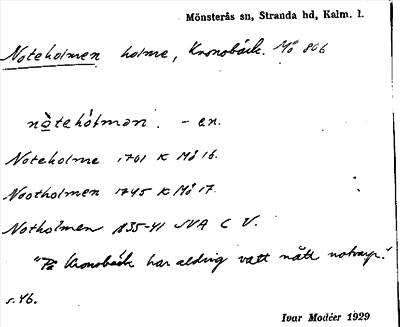 Mönsterås sn, Stranda hd, Kalm. l.
Noteholmen holme, Kronobäck. Mö 806
nòtehólmən. - en.
Noteholme 1701 K Mö 16.
Nootholmen 1745 K Mö 17.
Notholmen 1835-41 JVA C V.
"På Kronobäck har aldrig vatt nått notvarp."
s. 46.
Ivar Modéer 1929